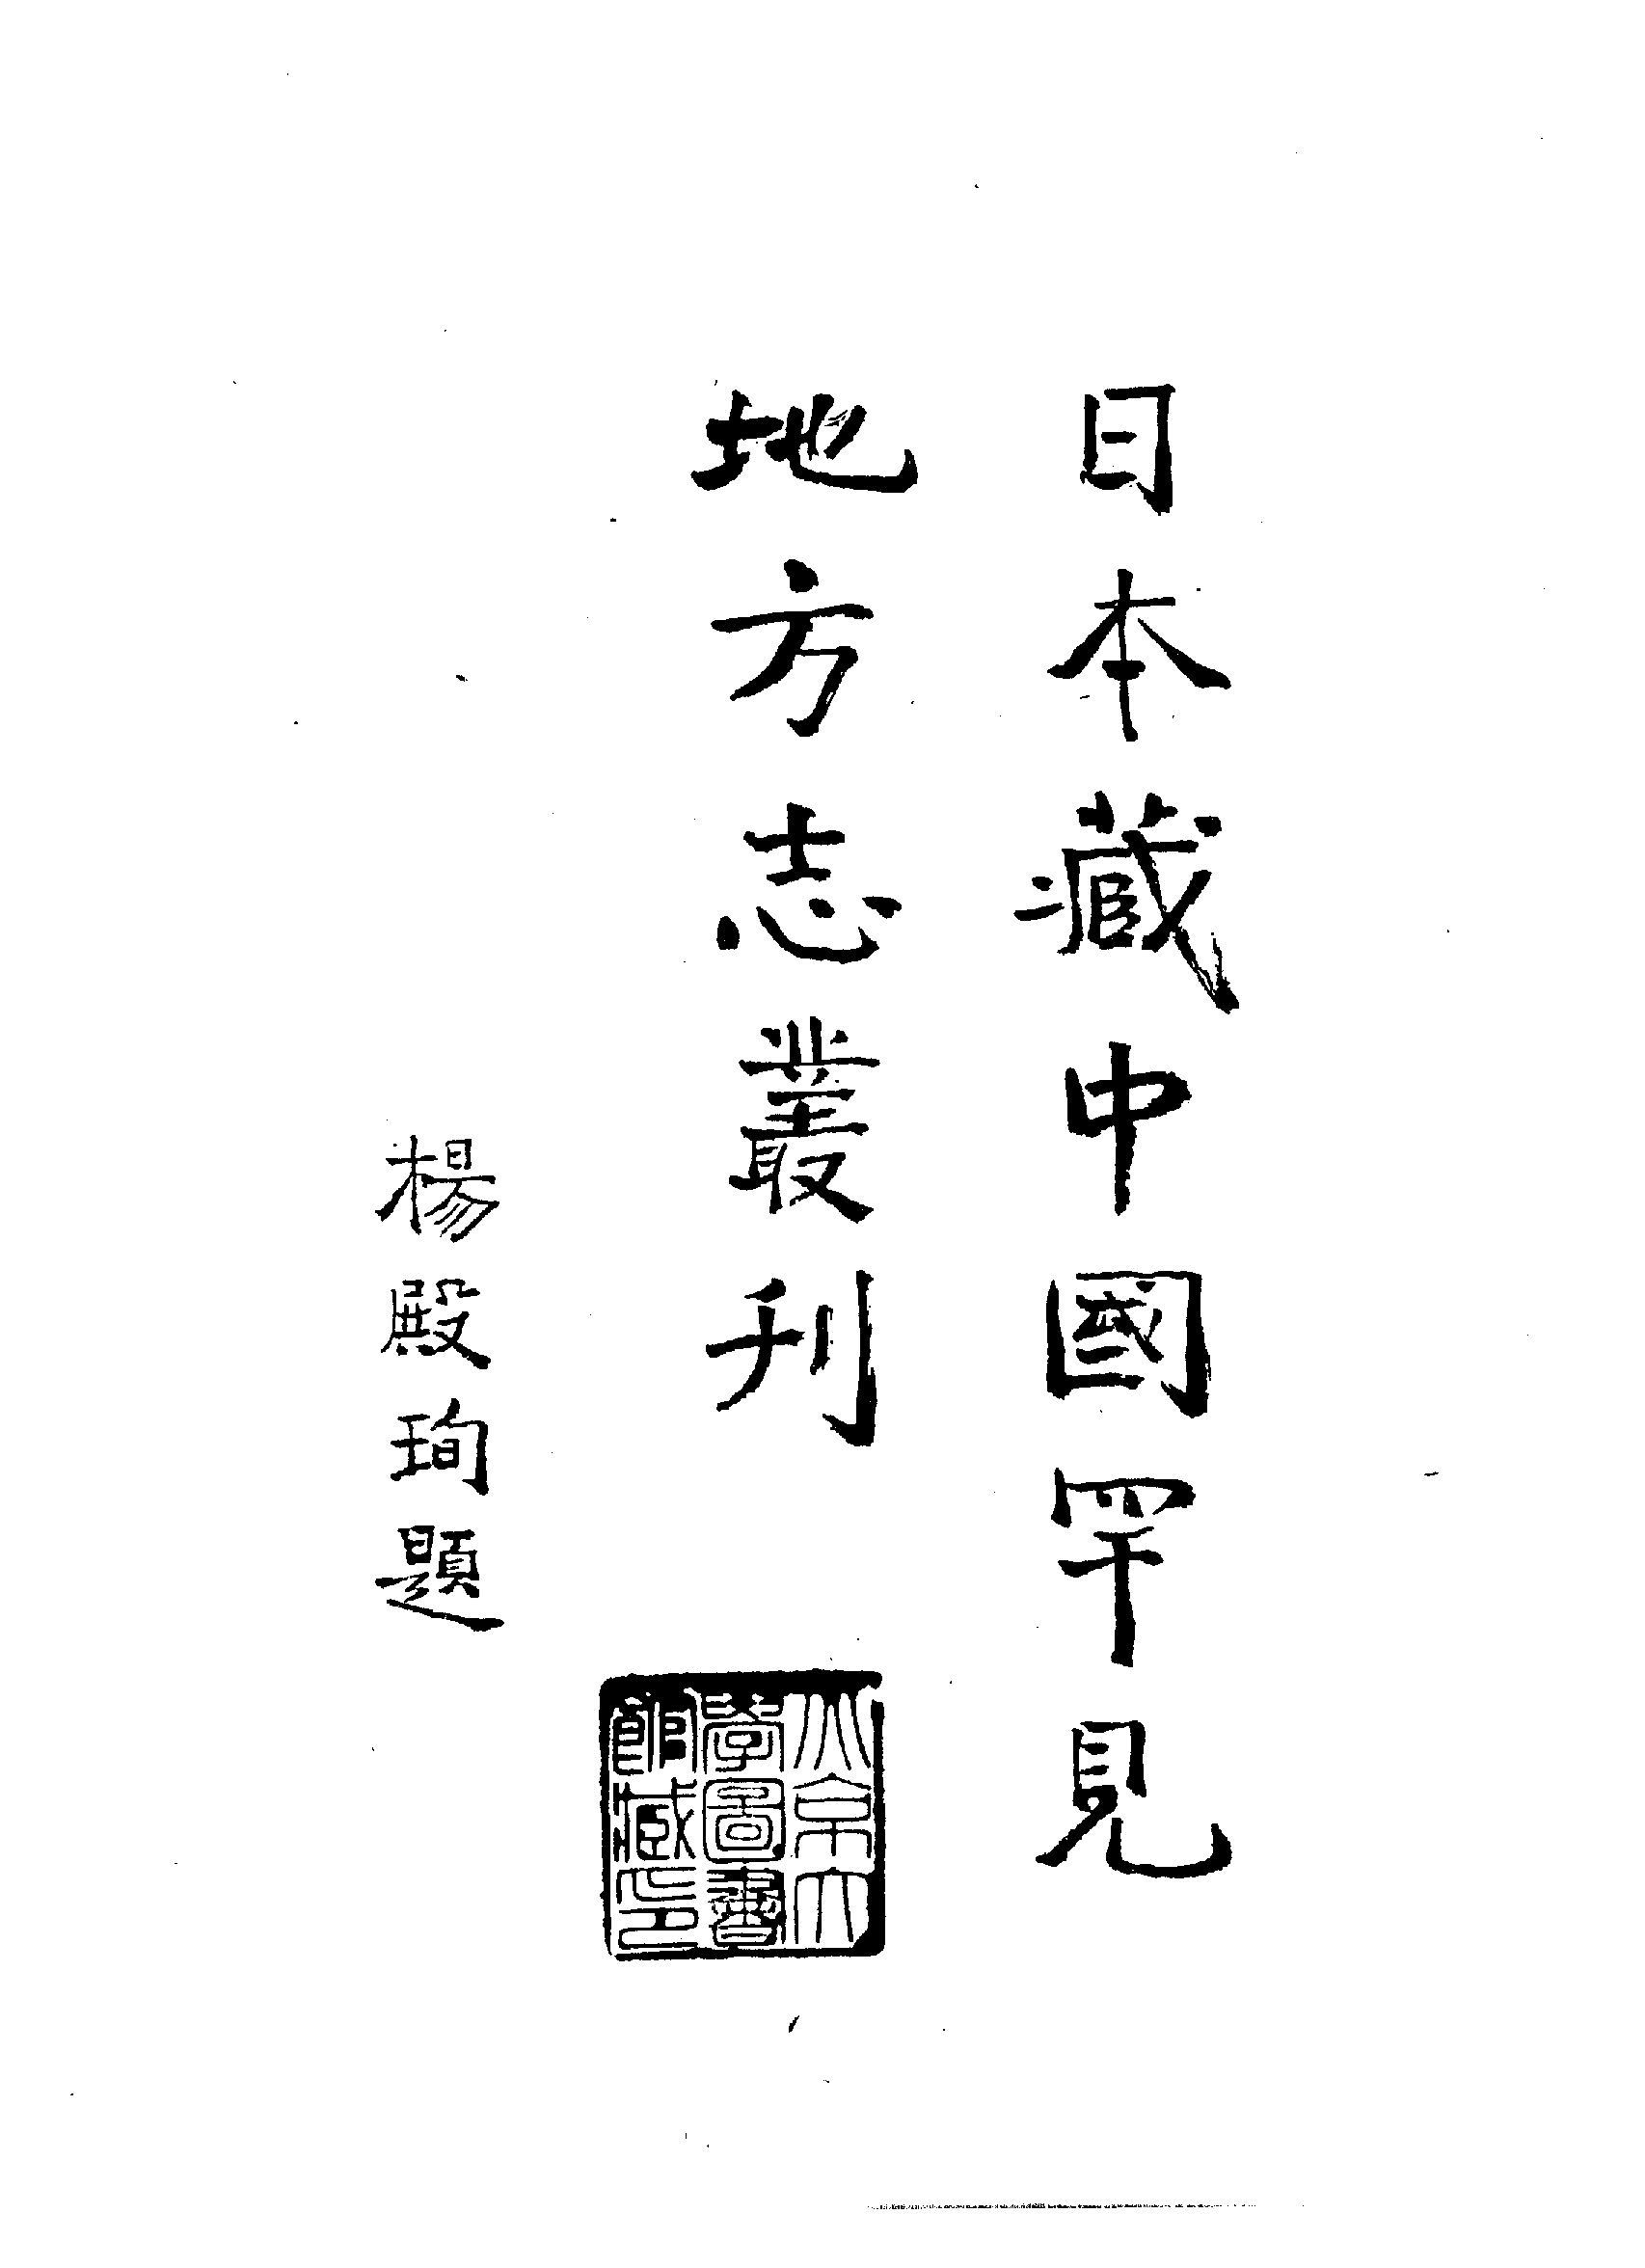 日本藏中國罕見
地方志叢刊
楊殿珣題
北京大
學圖書
館藏印